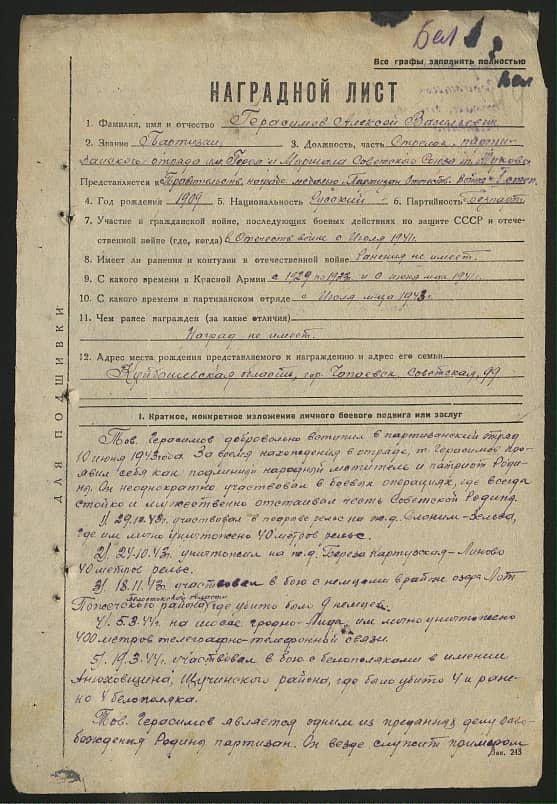 Бел
Все графы заполнять полностью
Бел
НАГРАДНОЙ ЛИСТ
1. Фамилия, имя и отчество Герасимов Алексей Васильевич
2. Звание Партизан 3. Должность, часть Стрелок, парти-
занского отряда им. Героя и Маршала Советского Союза т. Жукова
Представляется к Правительств. награде медалью „Партизан Отечеств. войны" I степ.
4. Год рождения 1909 5. Национальность Русский 6. Партийность беспарт.
7. Участие в гражданской войне, последующих боевых действиях по защите СССР и отече-
ственной войне (где, когда) в Отечеств. войне с Июля 1941г.
8. Имеет ли ранения и контузии в отечественной войне Ранения не имеет.
9. С какого времени в Красной Армии с 1929 по 1932 и с июня м-ца 1941г.
10. С какого времени в партизанском отряде с Июля м-ца 1943г.
11. Чем ранее награжден (за какие отличия)
Наград не имеет.
12. Адрес места рождения представляемого к награждению и адрес его семьи
Куйбышевская область, гор. Чапаевск Советская, 99
ДЛЯ ПОДШИВКИ
I. Краткое, конкретное изложение личного боевого подвига или заслуг
Тов. Герасимов добровольно вступил в партизанский отряд
10 июня 1943 года. За время нахождения в отряде, т. Герасимов про-
явил себя как подлинный народный мститель и патриот Роди-
ны. Он неоднократно участвовал в боевых операциях, где всегда
стойко и мужественно отстаивал честь Советской Родины.
1/ 29.10.43г. участвовал в подрыве рельс на ж.д. Слоним-Зельва,
где им лично уничтожено 40 метров рельс.
2/ 24.10.43г. уничтожил на ж.д. Береза Картузская-Линово
40 метров рельс.
3/ 18.11.43г. участвовал в бою с немцами в районе озера Лот
Белостокской области
Пожечского района, где убито было 9 немцев.
4/ 5.3.44г. на шоссе Гродно-Лида, им лично уничтожено
400 метров телеграфно-телефонной связи.
5/ 19.3.44г. участвовал в бою с белополяками в имении
Анюховщина, Щучинского района, где было убито 4 и ране-
но 4 белополяка.
Тов. Герасимов является одним из преданных делу осво-
бождения Родины партизан. Он везде служит примером
Зак. 243